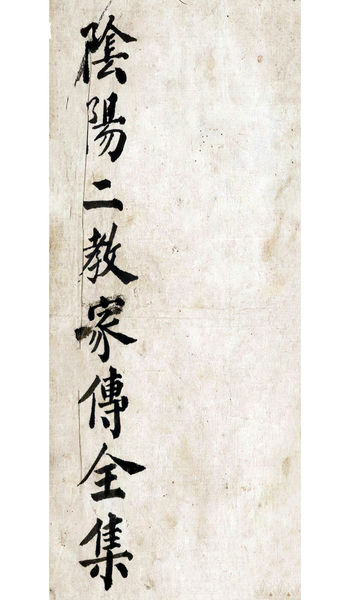 陰陽二教家傳全集